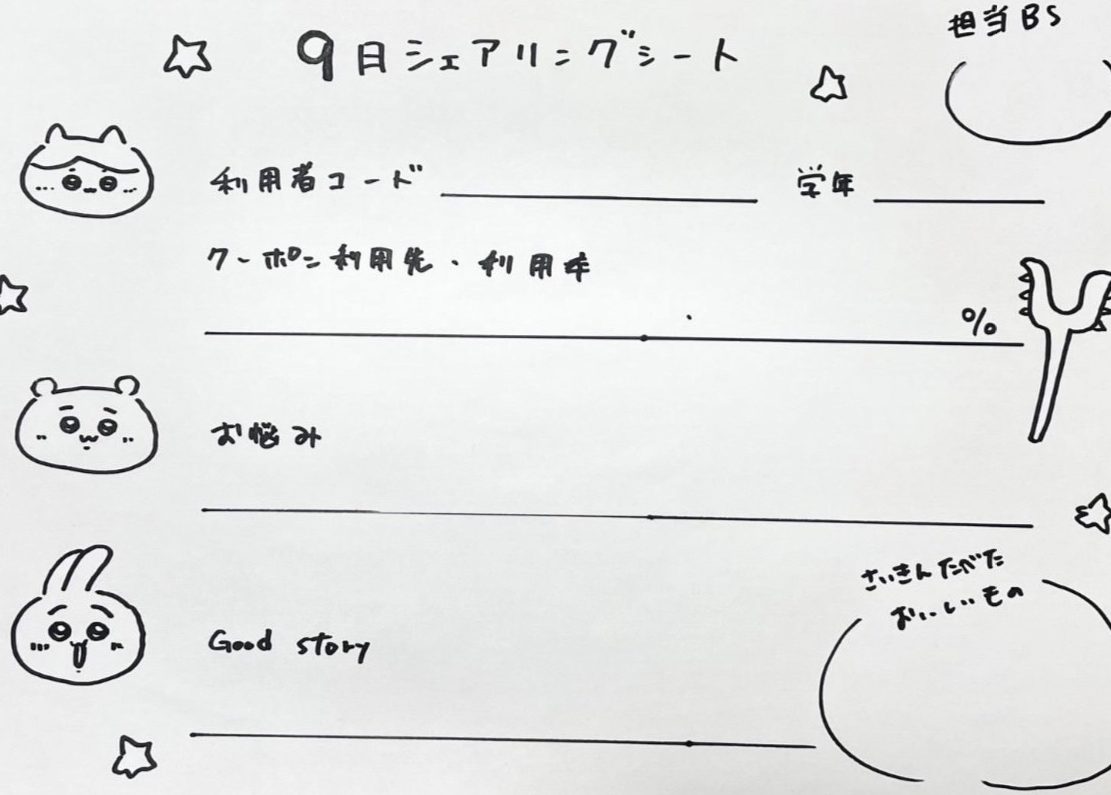 担当BS
9月シェアリングシート
利用者コード 学年
クーポン利用先・利用率
%
お悩み
さいきんたべた
おいしいもの
Good story